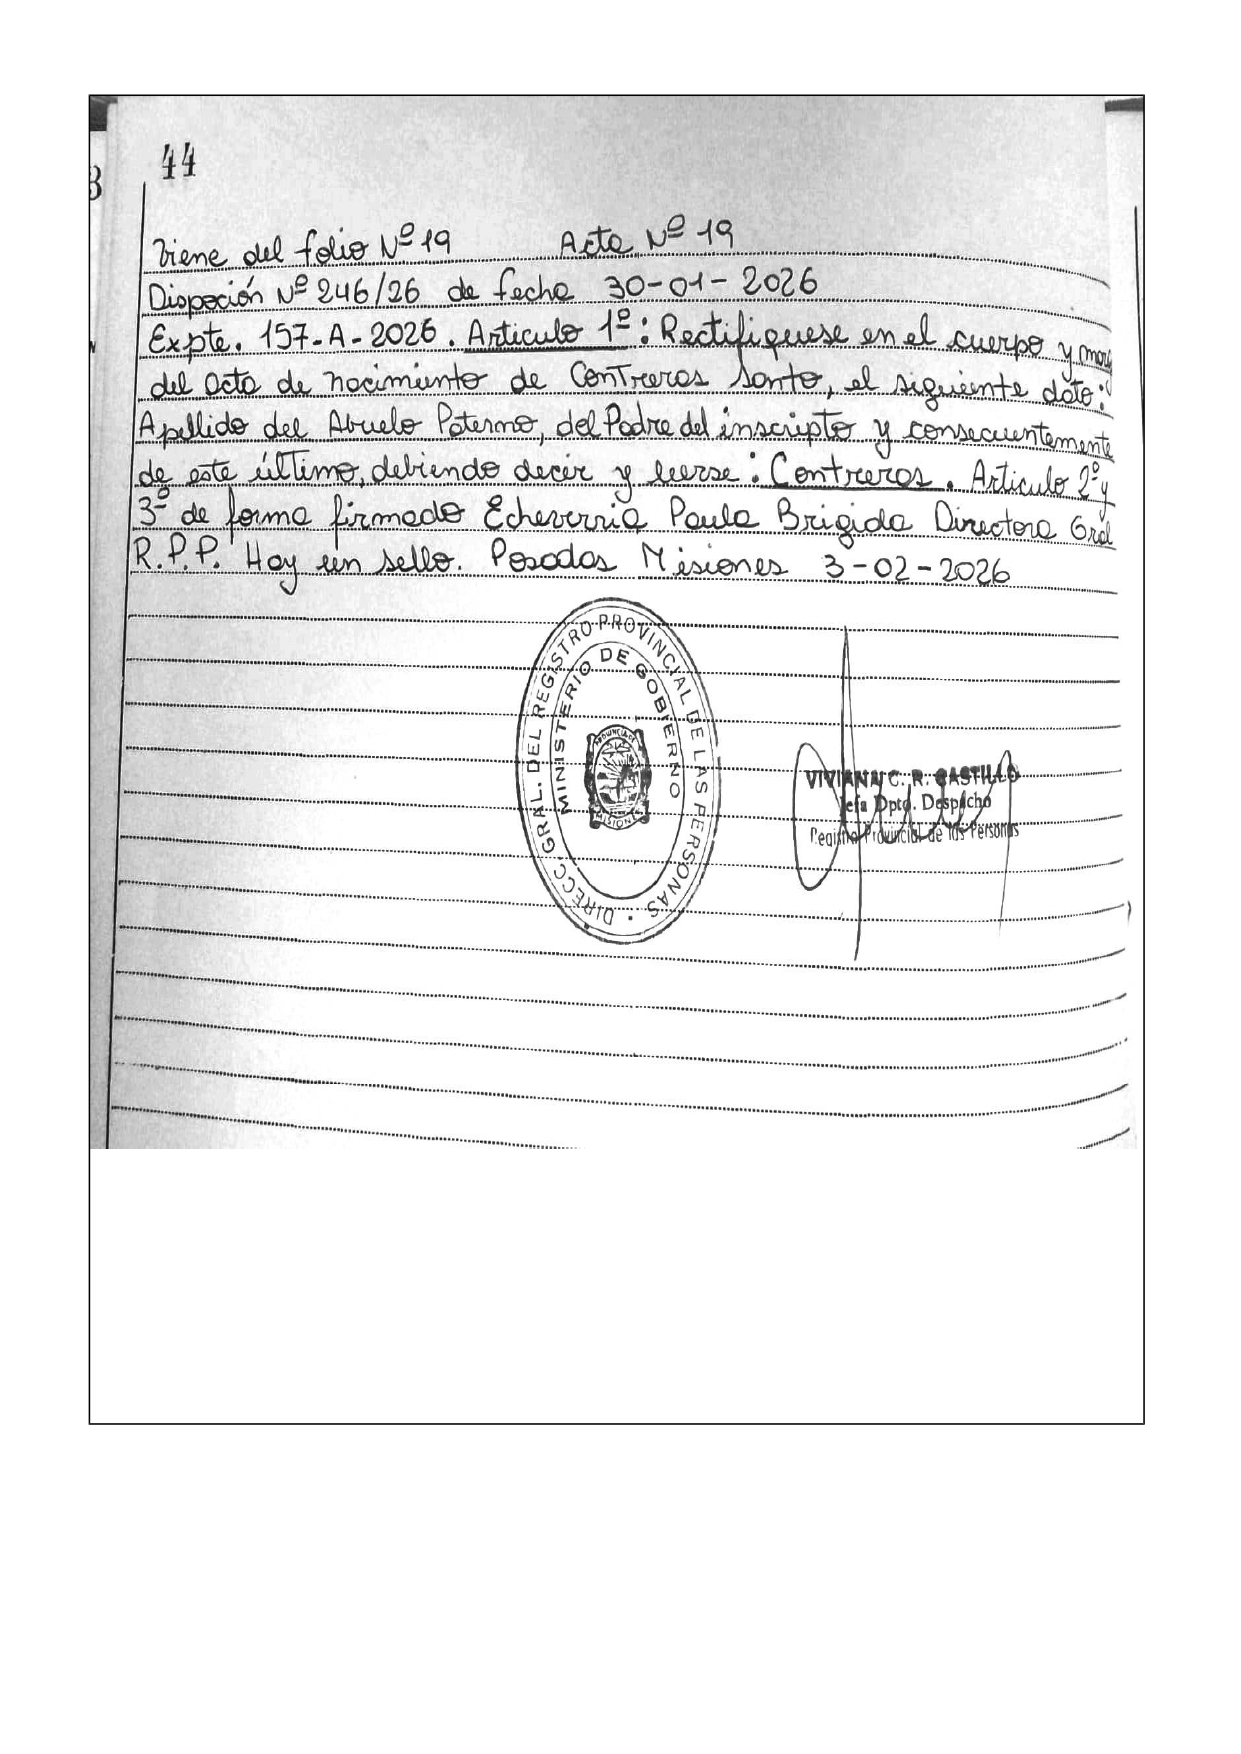 44
Viene del folio Nº 19 Acta Nº 19
Dispoción Nº 246/26 de fecha 30-01-2026
Expte. 157-A-2026. Articulo 1º: Rectifiquese en el cuerpo y
del acta de nacimiento de Contreras Santo, el siguiente dato:
Apellido del Abuelo Paterno, del Padre del inscripto y consecuentemente
de este último, debiendo decir y leerse: Contreras. Articulo 2º y
3º de forma firmado Echeverria Paula Brigida Directora Gral
R.P.P. Hay un sello. Posadas Misiones 3-02-2026
DIRECC. GRAL. DEL REGISTRO PROVINCIAL DE LAS PERSONAS
MINISTERIO DE GOBIERNO
PROVINCIA DE
MISIONES
VIVIANA C. R. CASTILLO
Jefa Dpto. Despacho
Registro Provincial de las Personas